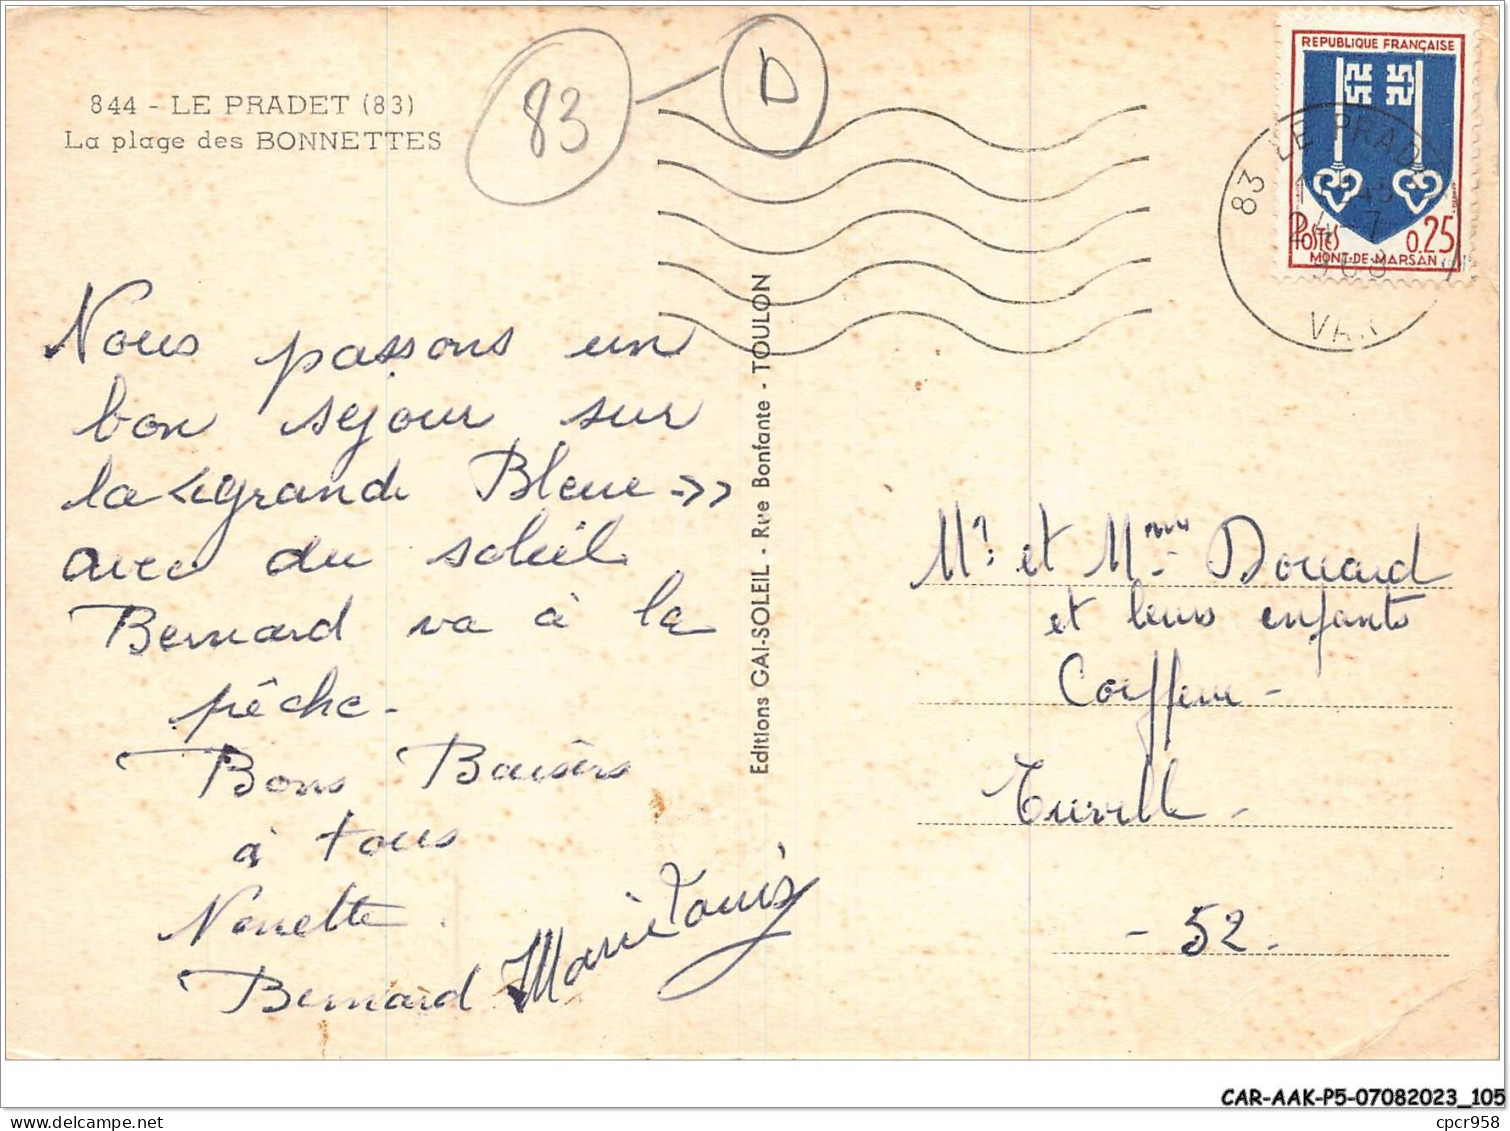 844 - LE PRADET (83)
La plage des BONNETTES
83
D
REPUBLIQUE FRANÇAISE
POSTES 0,25
MONT-DE-MARSAN
83 LE PRAD
24-7
VAR
Nous passons un
bon sejour sur
la << grande Bleue >>
avec du soleil
Bernard va à la
pêche -
Bons Baisers
à tous
Nenette
Bernard Marie Louis
Editions GAI-SOLEIL - Rue Bonfante - TOULON
Mr. et Mme Douard
et leurs enfants
Coiffeur -
-
- 52 -
CAR-AAK-P5-07082023_105
www.delcampe.net
cpcr958